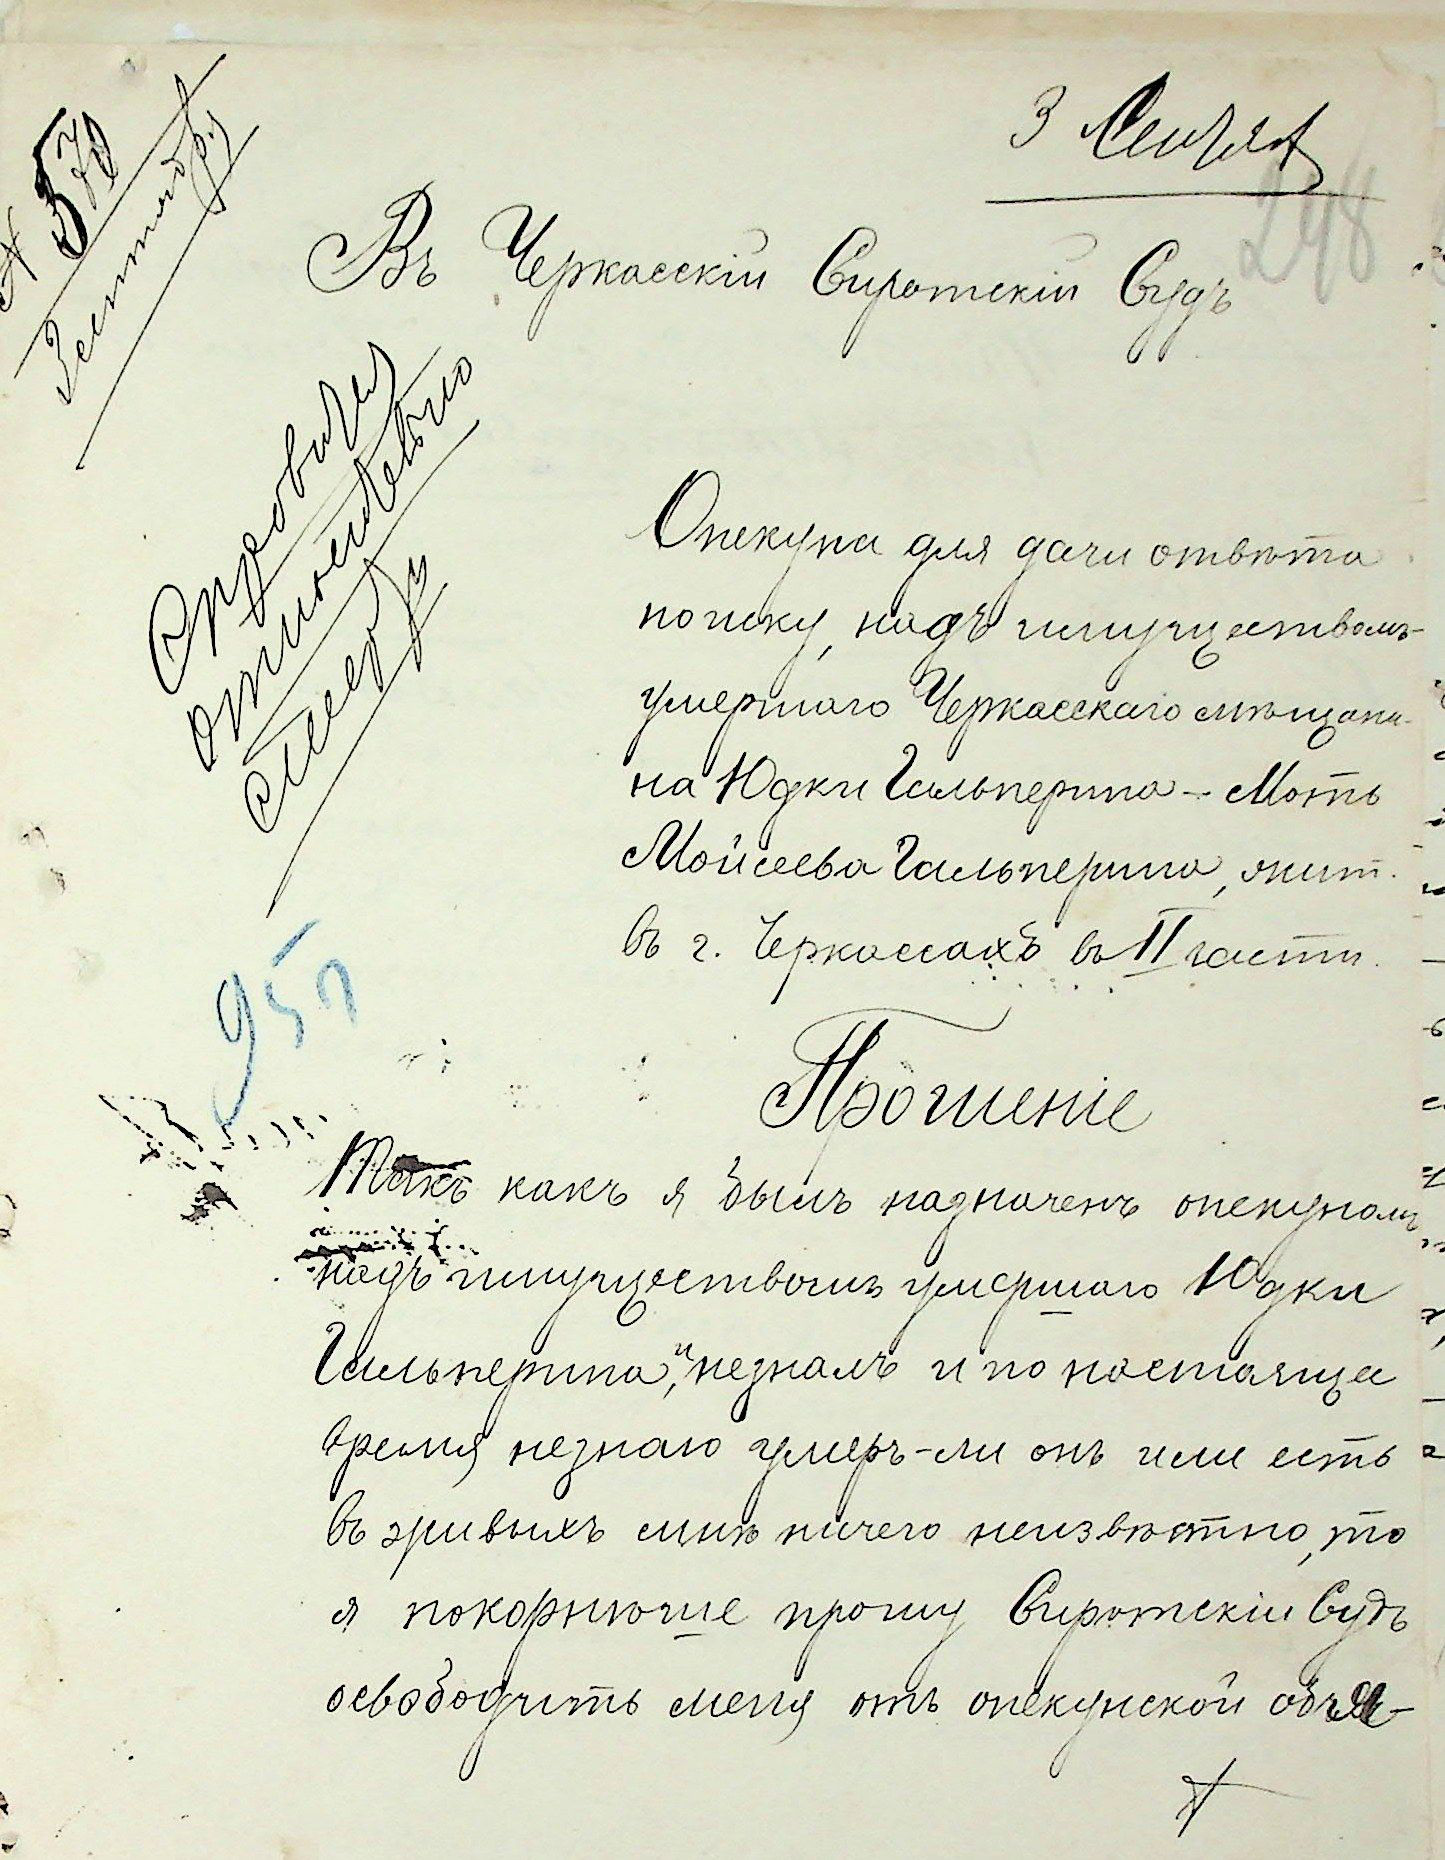 3 Сентяб
248
№ 570
3 сентября
Въ Черкасскій Сиротскій Судъ
Опекуна для дачи отвѣта
по иску, надъ имуществомъ
умершаго Черкасскаго мѣщани-
на Юдки Гальперина - Моть
Мойсеева Гальперина, жит.
въ г. Черкассахъ въ II части.
95
Прошеніе
Такъ какъ я былъ назначенъ опекуномъ
надъ имуществомъ умершаго Юдки
Гальперина, и незналъ и по настояще
время незнаю умеръ-ли онъ или есть
въ живыхъ мнѣ ничего неизвѣстно, то
я покорнюше прошу Сиротскій Судъ
освободить меня отъ опекунской обя-